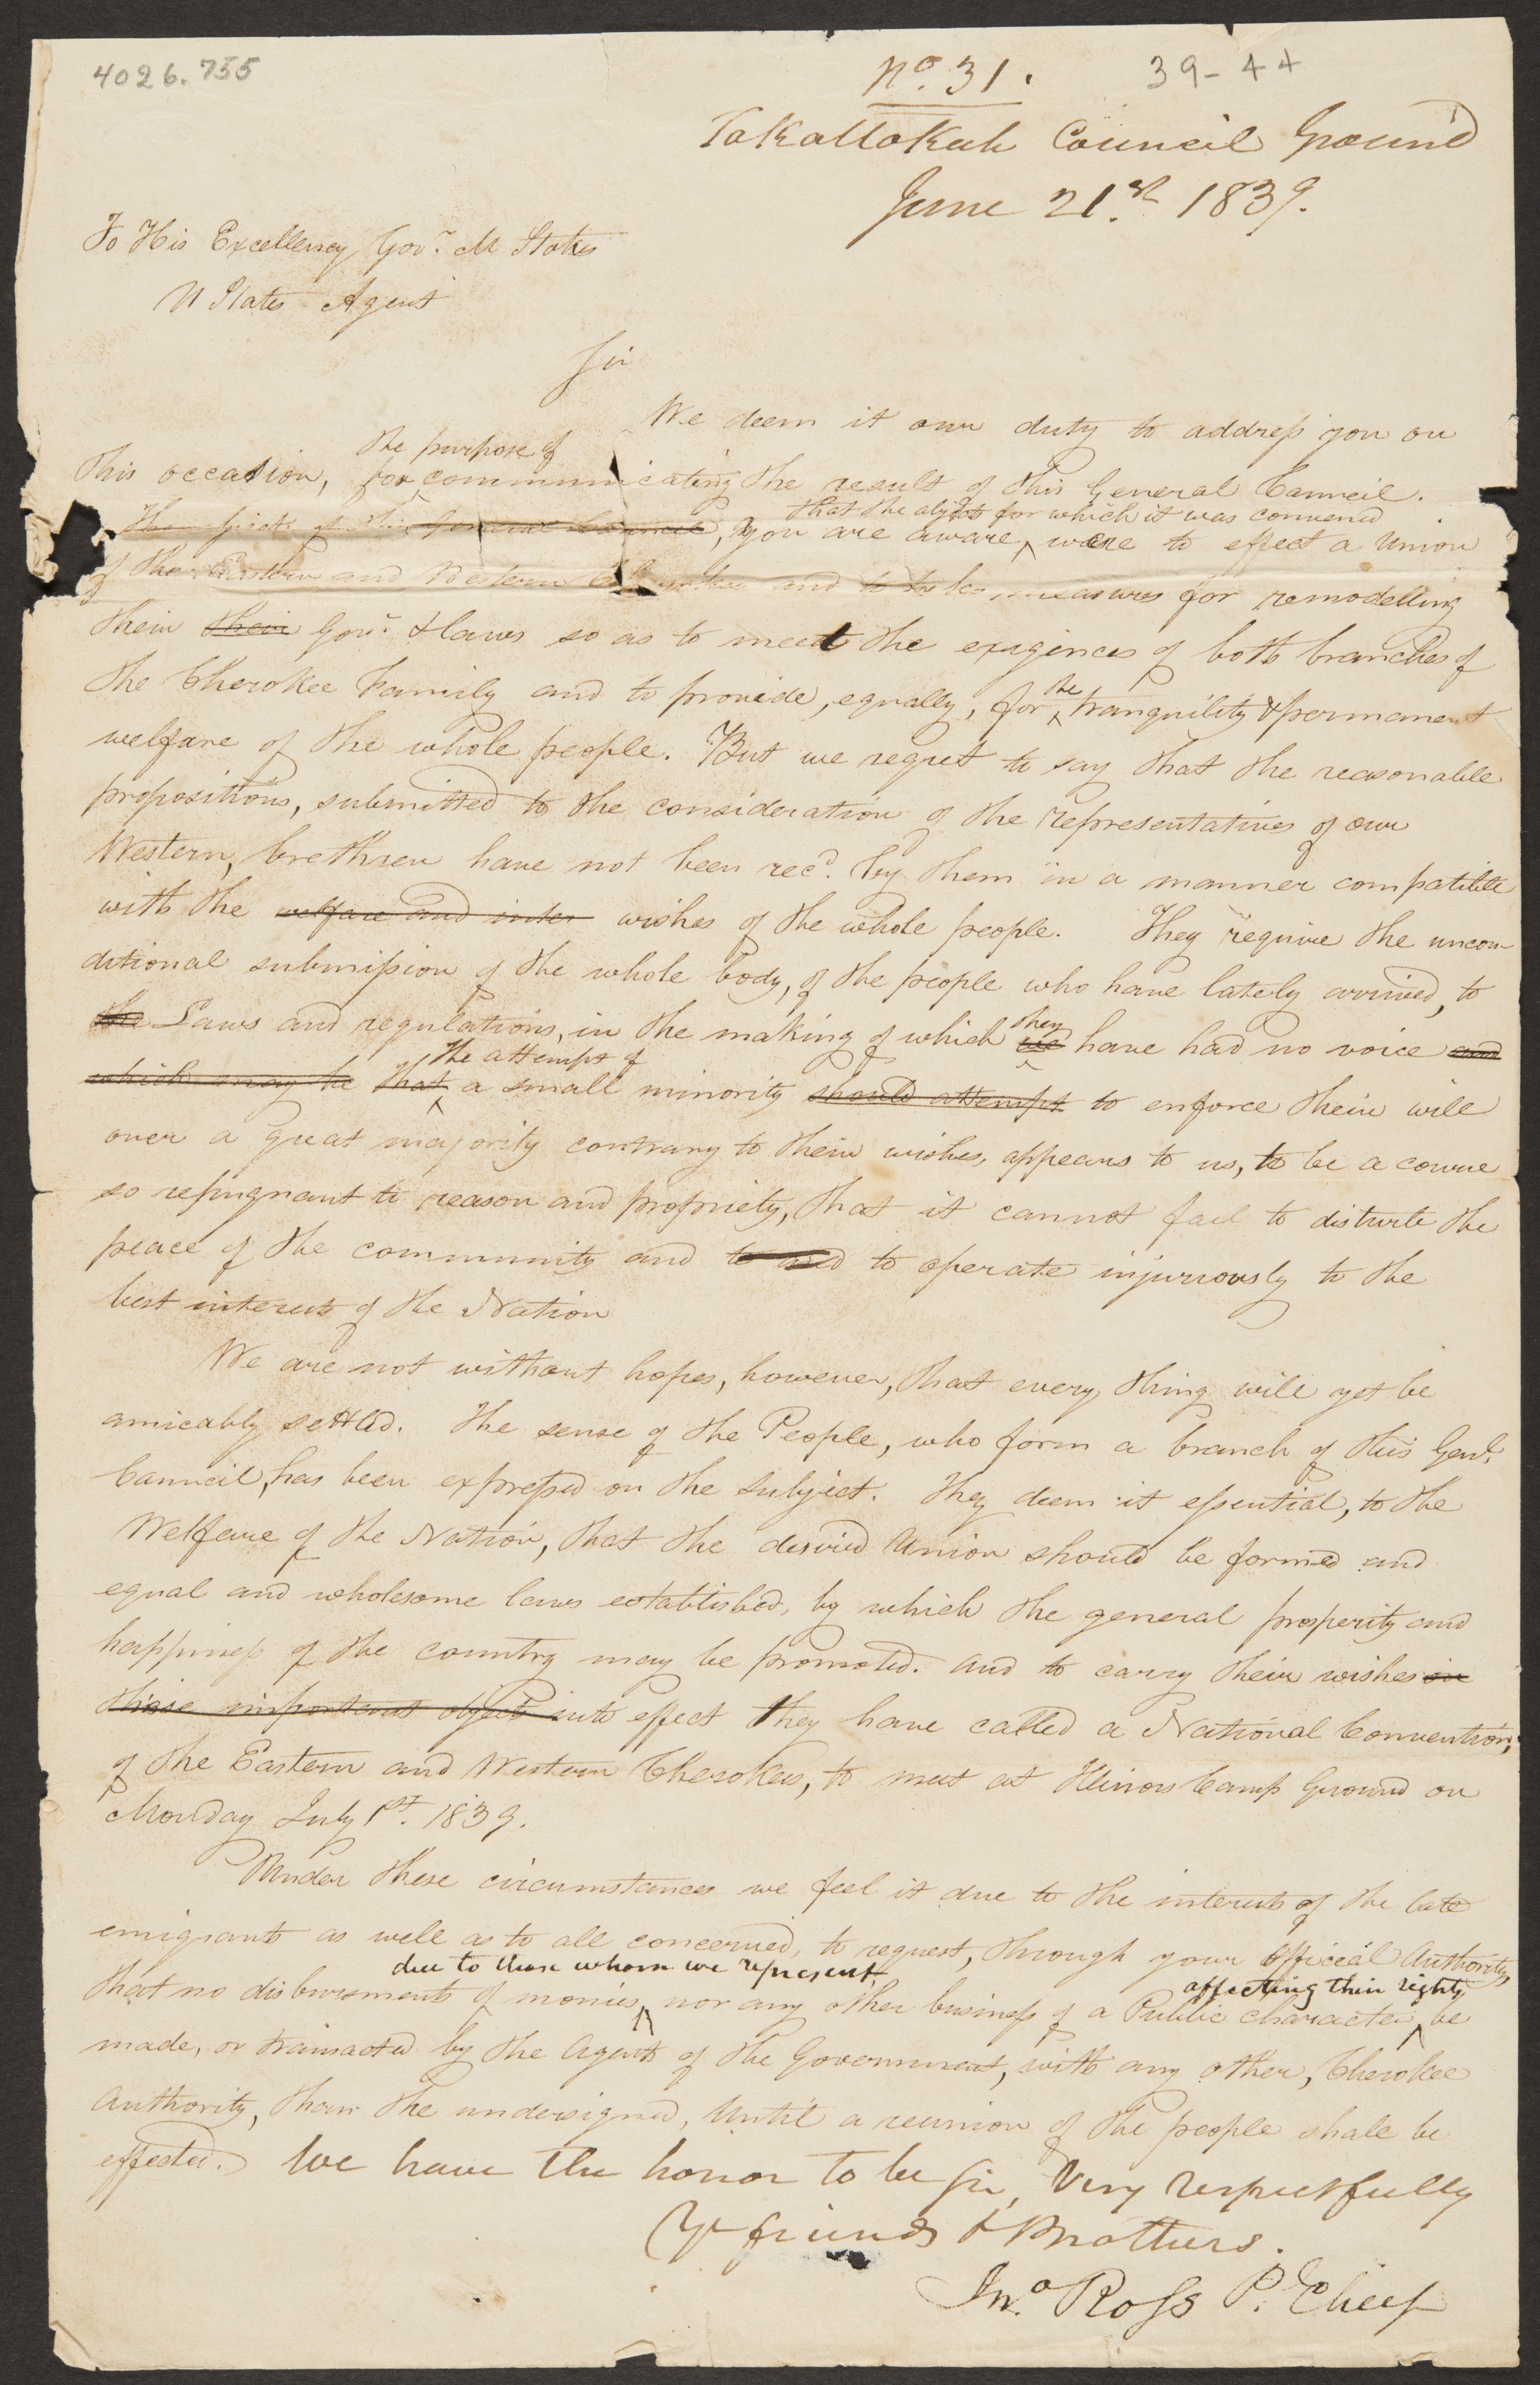 4026.755
No. 31.
39-44
Takattokah Council Ground
June 21.st 1839.
To His Excellency Gov.r M Stokes
U States Agent
Sir
We deem it our duty to address you on
the purpose of
this occasion, for communicating the result of this General Council.
that the objects for which it was convened
The objects of this General Council, you are aware, were to effect a Union
of the Eastern and Western Cherokees and to take measures for remodelling
their their Gov.t & laws so as to meet the exigences of both branches of
the
the Cherokee Family and to provide, equally, for tranquility & permanent
welfare of the whole people. But we regret to say that the reasonable
propositions, submitted to the consideration of the representatives of our
Western, brethren have not been rec.d by them in a manner compatible
with the welfare and inter wishes of the whole people. They require the uncon
ditional submission of the whole body, of the people who have lately arrived, to
they
the Laws and regulations, in the making of which we have had no voice and
the attempt of
which may be that a small minority should attempt to enforce their will
over a great majority contrary to their wishes, appears to us, to be a course
so repugnant to reason and propriety, that it cannot fail to disturb the
peace of the community and to and to operate injuriously to the
best interests of the Nation
We are not without hopes, however, that every thing will yet be
amicably settled. The sense of the People, who form a branch of this Genl.
Council, has been expressed on the subject. They deem it essential, to the
Welfare of the Nation, that the desired Union should be formed and
equal and wholesome laws established, by which the general prosperity and
happiness of the country may be promoted. and to carry their wishes in
these important objects into effect they have called a National Convention,
of the Eastern and Western Cherokees, to meet at Illinois Camp Ground on
Monday July 1st. 1839.
Under these circumstances we feel it due to the interests of the late
emigrants as well as to all concerned, to request, through your official Authority,
due to those whom we represent, affecting their rights,
that no disbursments of monies, nor any other business of a Public character, be
made, or transacted by the Agents of the Government, with any other, Cherokee
Authority, than the undersigned, Until a reunion of the people shall be
effected. We have the honor to be Sir, Very respectfully
Yr friends & Brothers.
Jno. Ross P. Chief